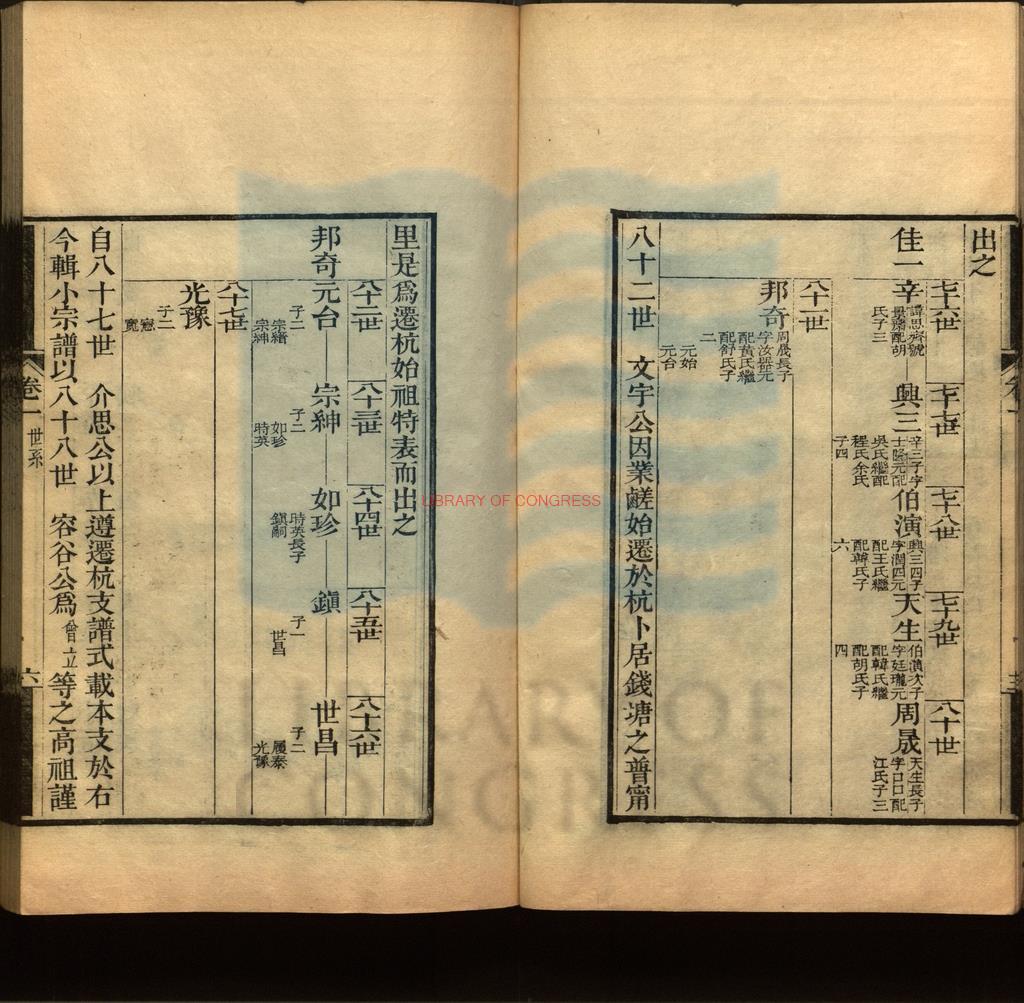 出之
七十六世
七十七世
七十八世
七十九世
八十世
佳一
辛
諱思齊號
景蕭配胡
氏子三
興三
辛三子字
士隆元配
吳氏繼配
程氏余氏
子四
伯演
興三四子
字潤四元
配王氏繼
配韓氏子
六
天生
伯演次子
字廷瓏元
配韓氏繼
配胡氏子
四
周晟
天生長子
字口口配
江氏子三
八十一世
邦奇
周晟長子
字汝器元
配黃氏繼
配舒氏子
二
元始
元台
八十二世 文宇公因業鹺始遷於杭卜居錢塘之普甯
里是為遷杭始祖特表而出之
八十二世
八十三世
八十四世
八十五世
八十六世
邦奇
元台
子二
宗縉
宗紳
宗紳
子二
如珍
時英
如珍
時英長子
鎮嗣
鎮
子一
世昌
世昌
子二
履泰
光豫
八十七世
光豫
子二
憲
寬
自八十七世 介思公以上遵遷杭支譜式載本支於右
今輯小宗譜以八十八世 容谷公為曾立等之高祖謹
卷一
世系
六
LIBRARY OF CONGRESS